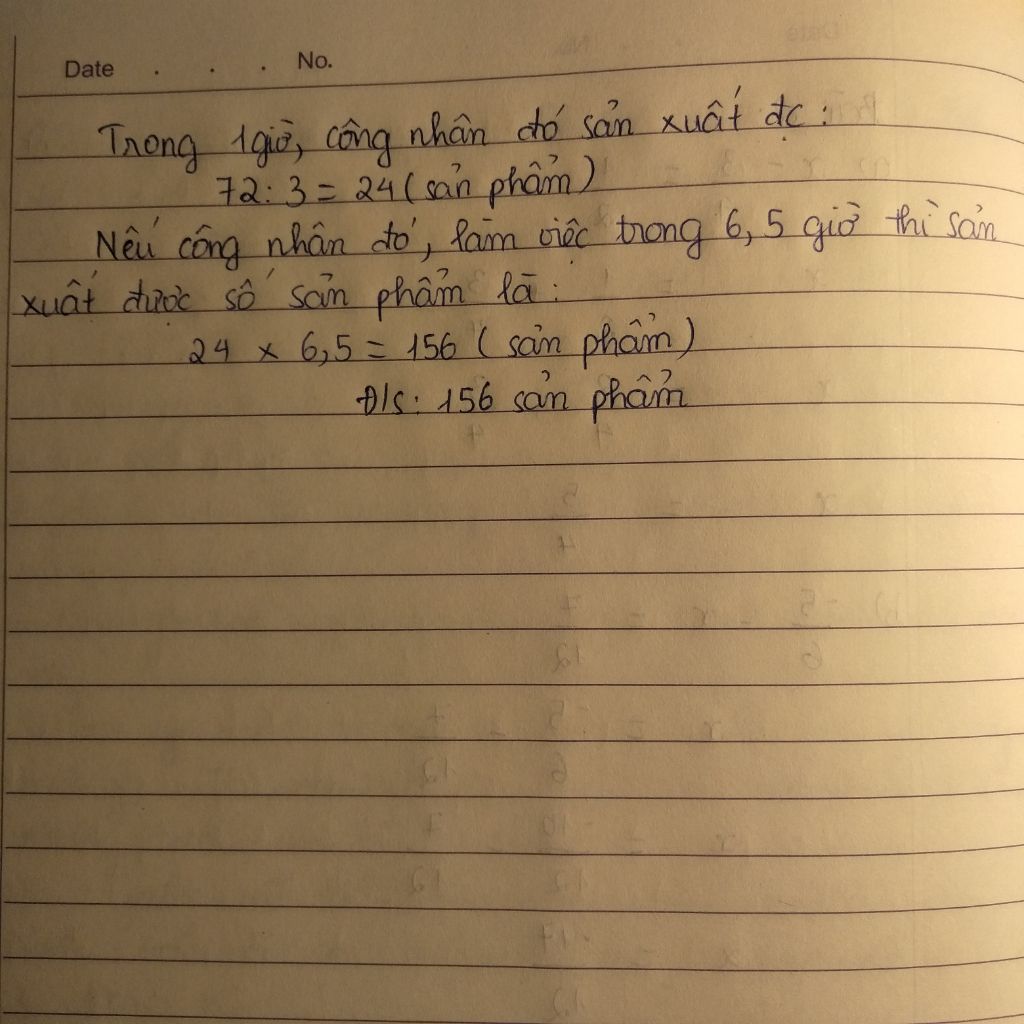 Date . . . No.
Trong 1 giờ, công nhân đó sản xuất đc :
72 : 3 = 24 ( sản phẩm )
Nếu công nhân đó, làm việc trong 6,5 giờ thì sản
xuất được số sản phẩm là :
24 x 6,5 = 156 ( sản phẩm )
Đ/S : 156 sản phẩm